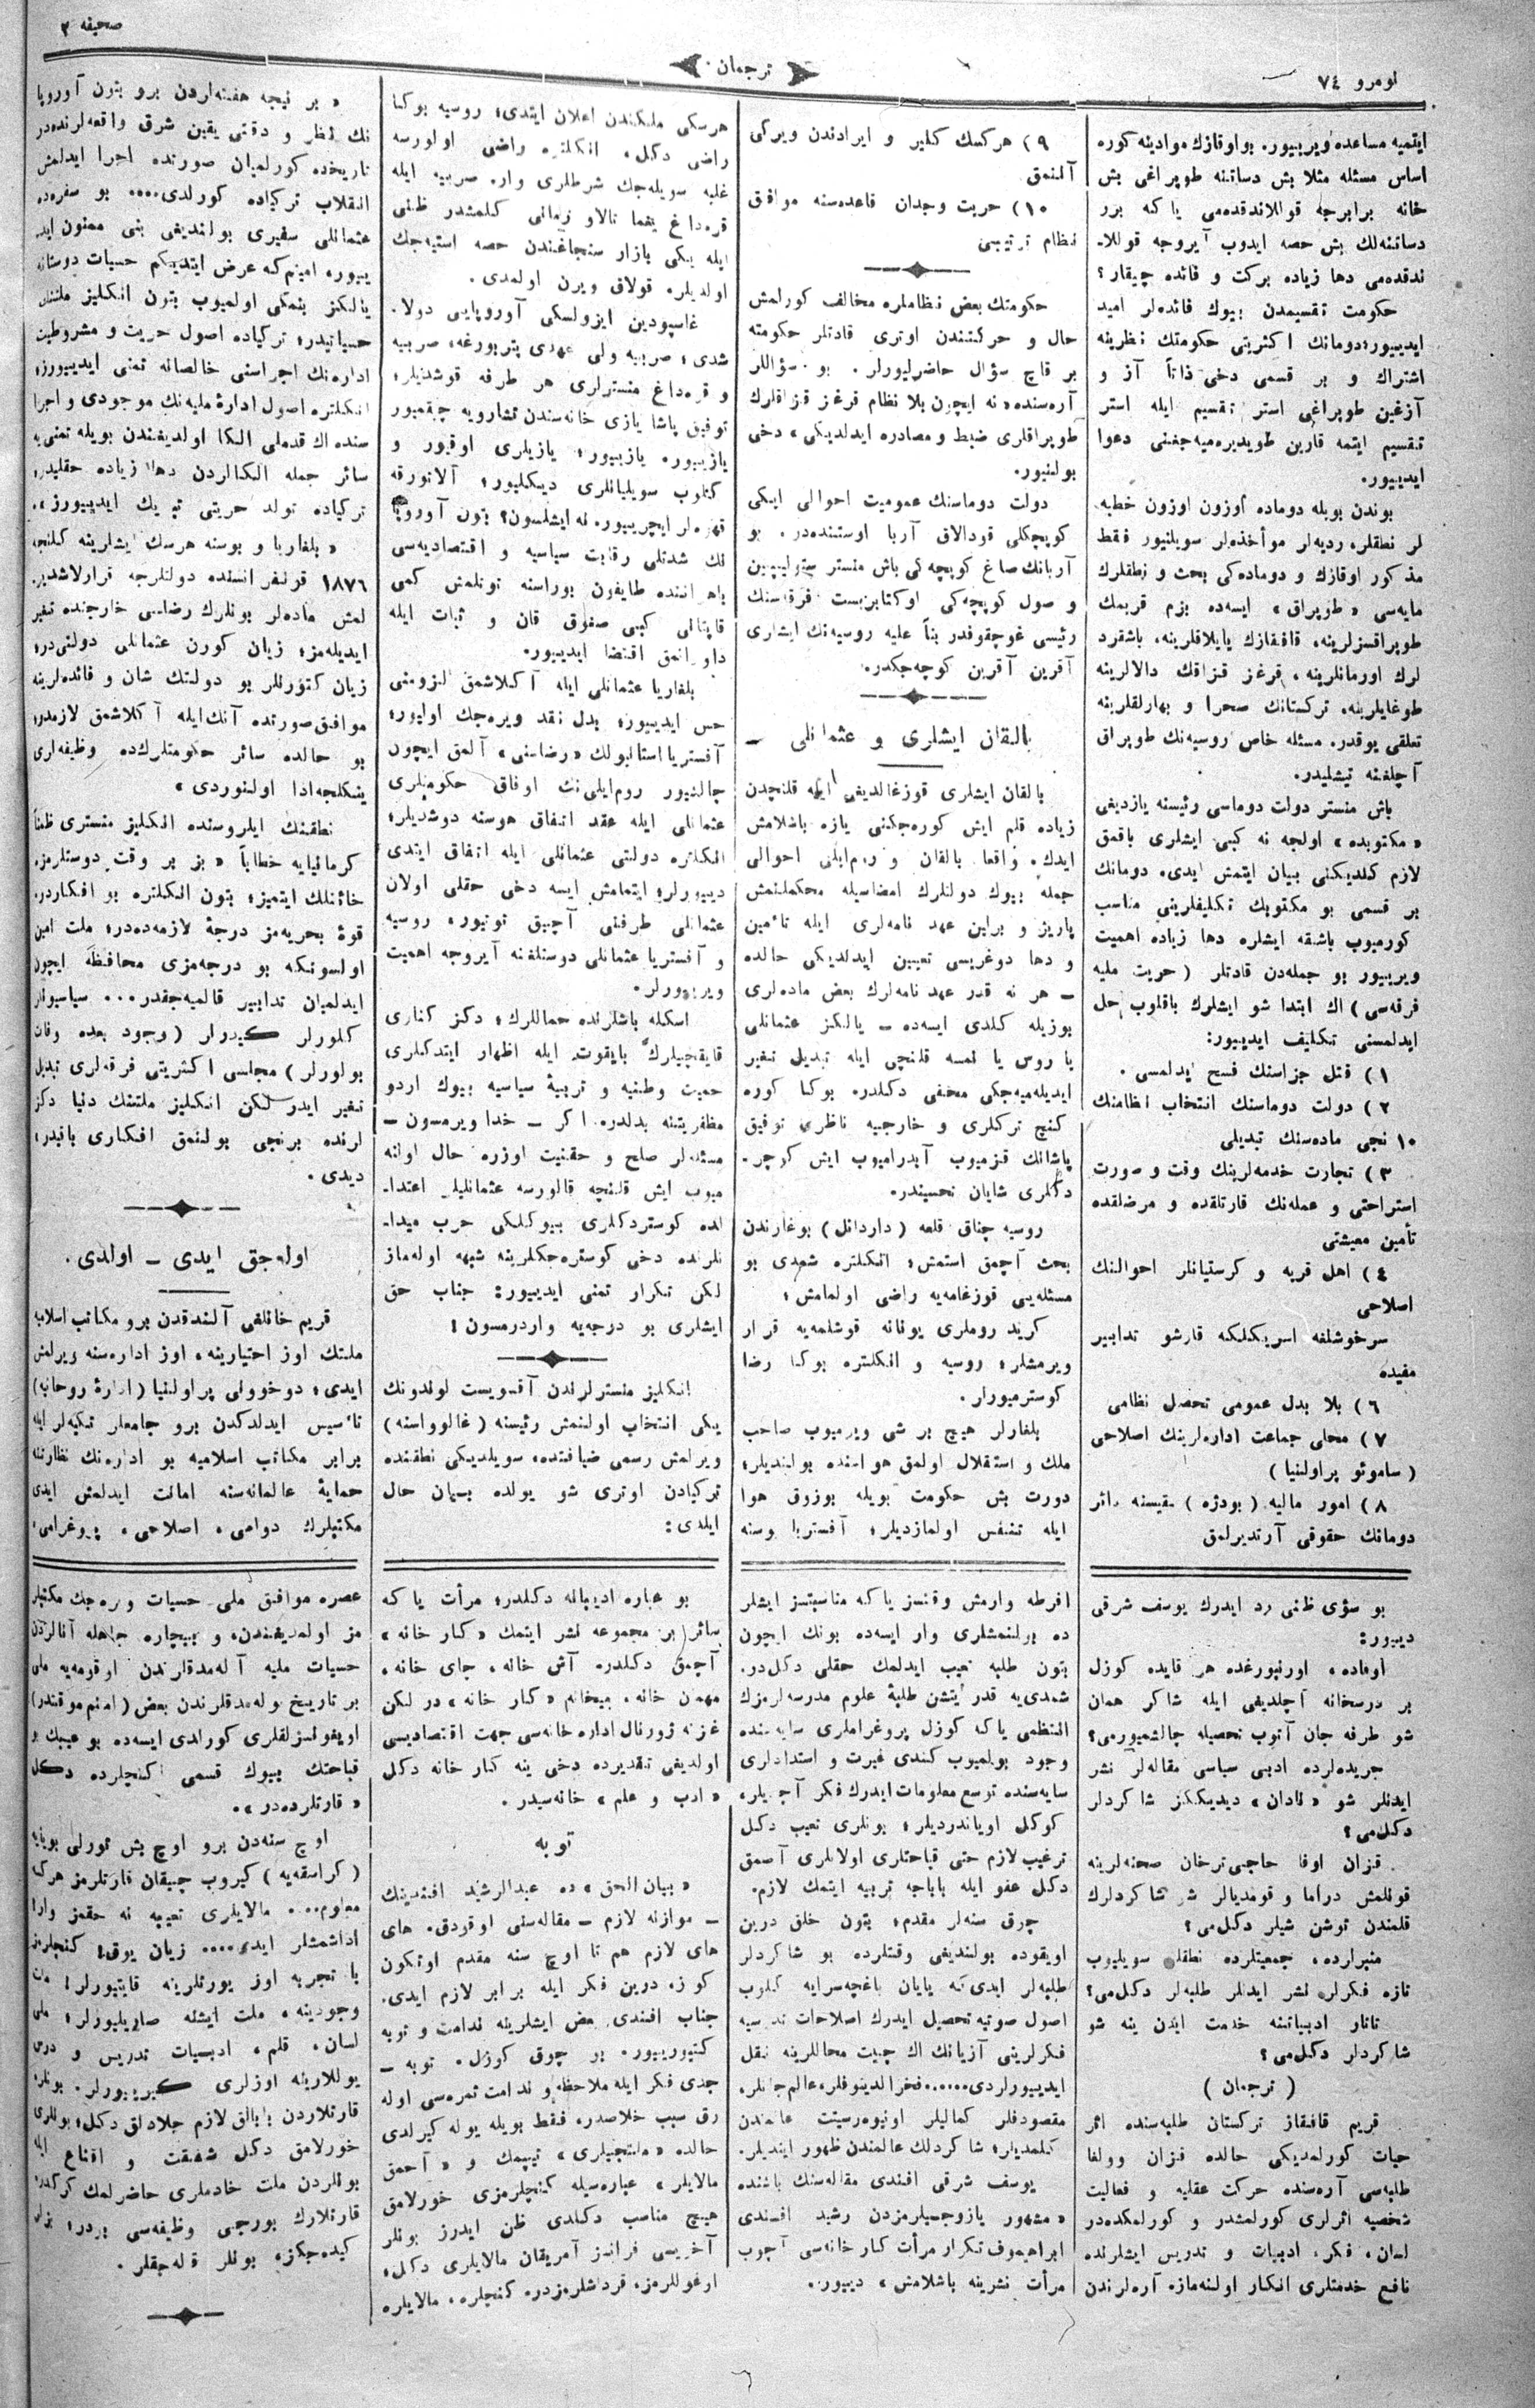 نومرو ٧٤
ترجمان
صحیفه ٢
ایتمیه مساعده ویریبیور. بو اوقازك موادینه کوره
اساس مسئله مثلا بش دساتنه طوپراغی بش
خانه برابرجه قوللاندقده‌می یا که برر
دساتنه‌لك بش حصه ایدوب آیروجه قوللا-
ندقده‌می دها زیاده برکت و فائده چیقار؟
حکومت تقسیمدن بیوك فائده‌لر امید
ایدیبیور؛ دومانك اکثریتی حکومتك نظرینه
اشتراك و بر قسمی دخی ذاتاً آز و
آزغین طوپراغی استر تقسیم ایله استر
تقسیم ایتمه قارین طویدیره‌میه‌جغنی دعوا
ایدیبیور.
بوندن بویله دوماده اوزون اوزون خطبه
لر نطقلر، ردیه‌لر مواخذه‌لر سویلنیور فقط
مذکور اوقازك و دوماده‌کی بحث و نطقلرك
مایه‌سی «طوپراق» ایسه‌ده بزم قریمك
طوپراقسزلرینه، قافقازك یایلاقلرینه، باشقرد
لرك اورمانلرینه، قرغز قزاقك دالالرینه
طوغایلرینه، ترکستانك صحرا و بهارلقلرینه
تعلقی یوقدر. مسئله خاص روسیه‌نك طوپراق
آچلغنه تیشلیدر.
باش منستر دولت دوماسی رئیسنه یازدیغی
«مکتوبده» اولجه نه کبی ایشلری باقمق
لازم کلدیکنی بیان ایتمش ایدی. دومانك
بر قسمی بو مکتوبك تکلیفلرینی مناسب
کورمیوب باشقه ایشلره دها زیاده اهمیت
ویریبیور بو جمله‌دن قادتلر (حریت ملیه
فرقه‌سی) اك ابتدا شو ایشلرك باقلوب حل
ایدلمسنی تکلیف ایدیبیور:
١) قتل جزاسنك فسخ ایدلمسی.
٢) دولت دوماسنك انتخاب نظامنك
١٠ نجی ماده‌سنك تبدیلی
٣) تجارت خدمه‌لرینك وقت و صورت
استراحتی و عمله‌نك قارتلقده و مرضلقده
تأمین معیشتی
٤) اهل قریه و کرستیانلر احوالنك
اصلاحی
سرخوشلغه اسریکلکه قارشو تدابیر
مفیده
٦) بلا بدل عمومی تحصل نظامی
٧) محلی جماعت اداره‌لرینك اصلاحی
(ساموئو پراولنیا)
٨) امور مالیه (بودژه) مقیسنه دائر
دومانك حقوقی آرتدیرلمق
٩) هرکسك کلیر و ایرادندن ویرکی
آلنمق
١٠) حریت وجدان قاعده‌سنه موافق
نظام ترتیبی
حکومتك بعض نظاملره مخالف کورلمش
حال و حرکتندن اوتری قادتلر حکومته
بر قاچ سؤال حاضرلیورلر. بو سؤاللر
آره‌سنده «نه ایچون بلا نظام قرغز قزاقلرك
طوپراقلری ضبط و مصادره ایدلدیکی» دخی
بولنیور.
دولت دوماسنك عمومیت احوالی ایکی
کوپچکلی قودالاق آربا اوستنده‌در. بو
آربانك صاغ کوپچه‌کی باش منستر ستولیپین
و صول کوپچه‌کی اوکتابریست فرقه‌سنك
رئیسی غوچقوفدر بناً علیه روسیه‌نك ایشلری
آقرین آقرین کوچه‌جکدر.
بالقان ایشلری و عثمانلی –
بالقان ایشلری قوزغالدیغی ایله قلنچدن
زیاده قلم ایش کوره‌جکنی یازه باشلامش
ایدك. واقعا بالقان و روم‌ایلی احوالی
جمله بیوك دولتلرك امضاسیله محکملنمش
پاریز و برلین عهد نامه‌لری ایله تأمین
و دها دوغریسی تعیین ایدلدیکی حالده
– هر نه قدر عهد نامه‌لرك بعض ماده‌لری
بوزیله کلدی ایسه‌ده – یالکز عثمانلی
یا روس یا نمسه قلنچی ایله تبدیل تغیر
ایدیله‌میه‌جکی مخفی دکلدر. بوکا کوره
کنچ ترکلری و خارجیه ناظری توفیق
پاشانك قزمیوب آیدرامیوب ایش کوچر-
دکلری شایان تحسیندر.
روسیه چناق قلعه (داردانل) بوغازندن
بحث آچمق استمش؛ انکلتره شمدی بو
مسئله‌یی قوزغامه‌یه راضی اولمامش؛
کرید روملری یونانه قوشلمه‌یه قرار
ویرمشلر؛ روسیه و انکلتره بوکا رضا
کوسترمیورلر.
بلغارلر هیچ بر شی ویرمیوب صاحب
ملك و استقلال اولمق هوامنده بولندیلر؛
دورت بش حکومت بویله بوزوق هوا
ایله تنفس اولمازدیلر؛ آفستریا بوسنه
هرسکی ملکندن اعلان ایتدی؛ روسیه بوکا
راضی دکل، انکلتره راضی اولورسه
غلبه سویله‌جك شرطلری وار. صربیه ایله
قره‌داغ یغما تالاو زمانی کلمشدر ظنی
ایله یکی بازار سنجاغندن حصه استیه‌جك
اولدیلر، قولاق ویرن اولمدی.
غاسپودین ایزولسکی آوروپایی دولا-
شدی؛ صربیه ولی عهدی پتربورغه؛ صربیه
و قره‌داغ منسترلری هر طرفه قوشدیلر؛
توفیق پاشا یازی خانه‌سندن تشارویه چقمیور
یازیبور، یازیبور؛ یازیلری اوقیور و
کتلوب سویلیانلری دیکلیور؛ آلاتورقه
قهوه‌لر ایچریبیور. نه ایشلسون؟ بتون آوروپا
نك شدتلی رقابت سیاسیه و اقتصادیه‌سی
طایفون بوراسنه توتلمش کمی
قاپتانی کبی صغوق قان و ثبات ایله
داورانمق اقتضا ایدیبیور.
بلغاریا عثمانلی ایله آکلاشمق لزومنی
حس ایدیبیور؛ بدل نقد ویره‌جك اولیور؛
آفستریا استانبولك «رضاسنی» آلمق ایچون
چالنیور روم‌ایلی‌نك اوفاق حکومتلری
عثمانلی ایله عقد اتفاق هوسنه دوشدیلر؛
انکلتره دولتی عثمانلی ایله اتفاق ایتدی
دیبیورلر؛ ایتمامش ایسه دخی حقلی اولان
عثمانلی طرفنی آچیق توتیور، روسیه
و آفستریا عثمانلی دوستلغنه آیروجه اهمیت
ویریبیورلر.
اسکله باشلرنده حماللرك؛ دکز کناری
قایقچیلرك بایقوت ایله اظهار ایتدکلری
حمیت وطنیه و تربیهٔ سیاسیه بیوك اردو
مظفریتنه بدلدر. اکر – خدا ویرمسون –
مسئله‌لر صلح و حقنیت اوزره حال اولنه
میوب ایش قلنچه قالورسه عثمانلیلر اعتدا-
لده کوستردکلری بیوکلکی حرب میدا-
نلرنده دخی کوستره‌جکلرینه شبهه اوله‌ماز
لکن تکرار تمنی ایدیبیور: جناب حق
ایشلری بو درجه‌یه واردرمسون!
انکلیز منسترلرندن آقسویست لوندونك
یکی انتخاب اولنمش رئیسنه (غالوواسنه)
ویرلمش رسمی ضیافتنده، سویلدیکی نطقنده
ترکیادن اوتری شو یولده بیان حال
ایلدی:
«بر نیجه هفته‌لردن برو بتون آوروپا
نك نظر و دقتی یقین شرق واقعه‌لرنده‌در
تاریخده کورلمیان صورتده اجرا ایدلمش
انقلاب ترکیاده کورلدی.... بو سفره‌ده
عثمانلی سفیری بولندیغی بنی ممنون ایدی
یبیور. امینم که عرض ایتدیکم حسیات دوستانه
یالکز بنمکی اولمیوب بتون انکلیز ملتنك
حسیاتیدر؛ ترکیاده اصول حریت و مشروطیت
اداره‌نك اجراسنی خالصانه تمنی ایدیبیورز؛
انکلتره اصول ادارهٔ ملیه‌نك موجودی و اجرا
سنده اك قدملی الکا اولدیغندن بویله تمنی‌یه
سائر جمله الکالردن دها زیاده حقلیدر؛
ترکیاده تولد حریتی تبریك ایدیبیورز».
«بلغاریا و بوسنه هرسك ایشلرینه کلنجه
١٨٧٦ قونفرانسنده دولتلرجه قرارلاشدیر-
لمش ماده‌لر بونلرك رضاسی خارجنده تغیر
ایدیله‌مز؛ زیان کورن عثمانلی دولتی‌در؛
زیان کتورنلر بو دولتك شان و فائده‌لرینه
موافق صورتده آنك ایله آکلاشمق لازمدر؛
بو حالده سائر حکومتلرك‌ده وظیفه‌لری
ینکلجه ادا اولنوردی»
نطقنك ایلروسنده انکلیز منستری ظناً
کرمانیایه خطاباً «بز بر وقت دوستلرمزه
خائنلك ایتمیز؛ بتون انکلتره بو افکاردر.
قوهٔ بحریه‌مز درجهٔ لازمه‌ده‌در؛ ملت امین
اولسونکه بو درجه‌مزی محافظه ایچون
ایدلمیان تدابیر قالمیه‌جقدر... سیاسیونلر
کلورلر کیدرلر (وجود بعده وفات
بولورلر) مجلسی اکثریتی فرقه‌لری تبدیل
تغیر ایدر لکن انکلیز ملتنك دنیا دکز
لرنده برنجی بولنمق افکاری باقیدر؛
دیدی.
اوله‌جق ایدی – اولدی.
قریم خانلغی آلندقدن برو مکاتب اسلامیه
ملتك اوز احتیارینه، اوز اداره‌سنه ویرلمش
ایدی؛ دوخوونی پراولنیا (ادارهٔ روحانیه)
تأسیس ایدلدکدن برو جامعلر تکیه‌لر ایله
برابر مکاتب اسلامیه بو اداره‌نك نظارتنه
حمایهٔ عالمانه‌سنه امانت ایدلمش ایدی
مکتبلرك دوامی، اصلاحی، پروغرامی،
بو سؤی ظنی رد ایدرك یوسف شرقی
دیبیور:
اوفاده، اورنبورغده هر قایده کوزل
بر درسخانه آچلدیغی ایله شاکر همان
شو طرفه جان آتوب تحصیله چالشمیورمی؟
جریده‌لرده ادبی سیاسی مقاله‌لر نشر
ایدنلر شو «نادان» دیدیککز شاکردلر
دکل‌می؟
قزان اوفا حاجی‌ترخان صحنه‌لرینه
قونلمش دراما و قومدیالر شو شاکردلرك
قلمندن توشن شیلر دکل‌می؟
منبرلرده، جمعیتلرده نطقلر سویلیوب
تازه فکرلر نشر ایدنلر طلبه‌لر دکل‌می؟
تاتار ادبیاتنه خدمت ایدن ینه شو
شاکردلر دکل‌می؟
(ترجمان)
قریم قافقاز ترکستان طلبه‌سنده اثر
حیات کورلمدیکی حالده قزان وولغا
طلبه‌سی آره‌سنده حرکت عقلیه و فعالیت
شخصیه اثرلری کورلمشدر و کورلمکده‌در
لسان، فکر، ادبیات و تدریس ایشلرنده
نافع خدمتلری انکار اولنه‌ماز، آره‌لرندن
افرطه وارمش وقتسز یا که مناسبتسز ایشلر
ده بولنمشلری وار ایسه‌ده بونك ایچون
بتون طلبه تعیب ایدلمك حقلی دکل‌در.
شمدی‌یه قدر یتشن طلبهٔ علوم مدرسه‌لرمزك
انتظمی یا که کوزل پروغراملری سایه‌سنده
وجود بولمیوب کندی غیرت و استدادلری
سایه‌سنده توسع معلومات ایدرك فکر آچدیلر،
کوکل اویاندردیلر؛ بونلری تعیب دکل
ترغیب لازم حتی قباحتلری اولانلری آصمق
دکل عفو ایله باباجه تربیه ایتمك لازم.
چوق سنه‌لر مقدم؛ بتون خلق درین
اویقوده بولندیغی وقتلرده بو شاکردلر
طلبه‌لر ایدی‌که یایان باغچه‌سرایه کلوب
اصول صوتیه تحصیل ایدرك اصلاحات تدریسیه
فکرلرینی آزیانك اك چیت محاللرینه نقل
ایدیبیورلردی...... فخرالدینوفلر، عالم‌جانلر،
مقصودفلر کمالیلر اونیوه‌رسیتت عالمندن
کلمدیلر؛ شاکردلك عالمندن ظهور ایتدیلر.
یوسف شرقی افندی مقاله‌سنك باشنده
«مشهور یازوجیلرمزدن رشید افندی
ابراهیموف تکرار مرآت کتار خانه‌سی آچوب
مرآت نشرینه باشلامش» دیبیور.
بو عباره ادیبانه دکلدر؛ مرأت یا که
سائر بر مجموعه نشر ایتمك «کتار خانه»
آچمق دکلدر. آش خانه، جای خانه،
مهمان خانه، میخانه «کتار خانه» در لکن
غزته ژورنال اداره‌خانه‌سی جهت اقتصادیسی
اولدیغی تقدیرده دخی ینه کتار خانه دکل
«ادب و علم» خانه‌سیدر.
توبه
«بیان الحق» ده عبدالرشید افندینك
– موازنه لازم – مقاله‌سنی اوقودق. های
های لازم هم تا اوچ سنه مقدم اوتکون
کوزه درین فکر ایله برابر لازم ایدی.
جناب افندی بعض ایشلرینه ندامت و توبه
کتیوریبیور. بو چوق کوزل. توبه –
جدی فکر ایله ملاحظه و ندامت ثمره‌سی اوله
رق سبب خلاصدر، فقط بویله یوله کیرلدی
حالده «ملتچیلری» تیپمك و «آحمق
مالایلر» عباره‌سیله کنچلرمزی خورلامق
هیچ مناسب دکلدی ظن ایدرز بونلر
آخریسی فرانز آمریقان مالایلری دکل،
ارغوللرمز، قرداشلرمزدر. کنجلره، مالایلره
عصره موافق ملی حسیات ویره‌جك مکتبلر
مز اولمدیغندن، و بیچاره جاهله آنالردن
حسیات ملیه آله‌مدقلرندن اوقومه‌یه ملی
بر تاریخ بوله‌مدقلرندن بعض
اویغونسزلقلری کورلدی ایسه‌ده بو عیبك و
قباحتك بیوك قسمی کنجلرده دکل
«قارتلرده‌در».
اوچ سنه‌دن برو اوچ بش تورلی بویایه
(کراسقه‌یه) کیروب چیقان قارتلرمز هرکسه
معلوم.... مالایلری تعییبه نه حقمز وار؟
آداشمشلر ایدی.... زیان یوق! کنجلرمز
با تجربه اوز یورتلرینه قایتیورلر! ملت
وجودینه، ملت ایشنه صاریلیورلر؛ ملی
لسان، قلم، ادبیات تدریس و درس
یوللارینه اوزلری کیریبیورلر. بونلره
قارتلاردن یابالق لازم جلادلق دکل؛ بونلری
خورلامق دکل شفقت و اقناع ایله
بونلردن ملت خادملری حاضرلمك کرکدر؛
قارتلارك بورجی وظیفه‌سی بودر؛ بزلر
کیده‌جکز، بونلر قاله‌جقلر.